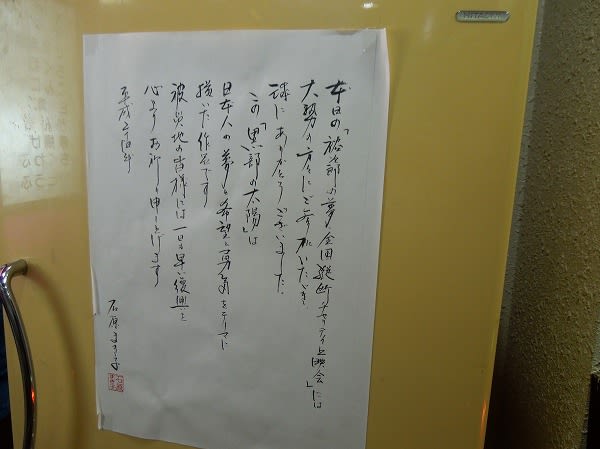 本日の「裕次郎の夢 全国縦断チャリティ上映会」には
大勢の方々にご参加いただき
誠にありがとうございました
この「黒部の太陽」は
日本人の夢と希望と勇気をテーマに
描いた作品です
被災地の皆様には一日も早い復興を
心よりお祈り申し上げます
平成二十四年
石原まき子
HITACHI